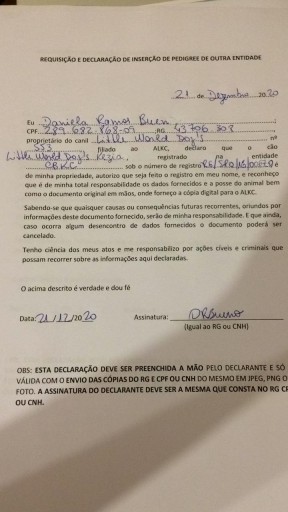 REQUISIÇÃO E DECLARAÇÃO DE INSERÇÃO DE PEDIGREE DE OUTRA ENTIDADE
21 de Dezembro 2020
Eu Daniela Ramos Buen
CPF 289.682.868-09 ,RG 43796303
proprietário do canil Little World Dog's nº
553 filiado ao ALKC, declaro que o cão
Little World Dog's Kezia, registrado na entidade
CBKC sob o número de registro
de minha propriedade, autorizo que seja feito o registro em meu nome, e reconheço
que é de minha total responsabilidade os dados fornecidos e a posse do animal bem
como o documento original em mãos, onde forneço a cópia digital para o ALKC.
Sabendo-se que quaisquer causas ou consequências futuras recorrentes, oriundos por
informações deste documento fornecido, serão de minha responsabilidade. E que ainda,
caso ocorra algum desencontro de dados fornecidos o documento poderá ser
cancelado.
Tenho ciência dos meus atos e me responsabilizo por ações cíveis e criminais que
possam recorrer sobre as informações aqui declaradas.
O acima descrito é verdade e dou fé
Data: 21/12/2020 Assinatura: DRBueno
(Igual ao RG ou CNH)
OBS: ESTA DECLARAÇÃO DEVE SER PREENCHIDA A MÃO PELO DECLARANTE E SÓ
VÁLIDA COM O ENVIO DAS CÓPIAS DO RG E CPF OU CNH DO MESMO EM JPEG, PNG O
FOTO. A ASSINATURA DO DECLARANTE DEVE SER A MESMA QUE CONSTA NO RG CP
OU CNH.